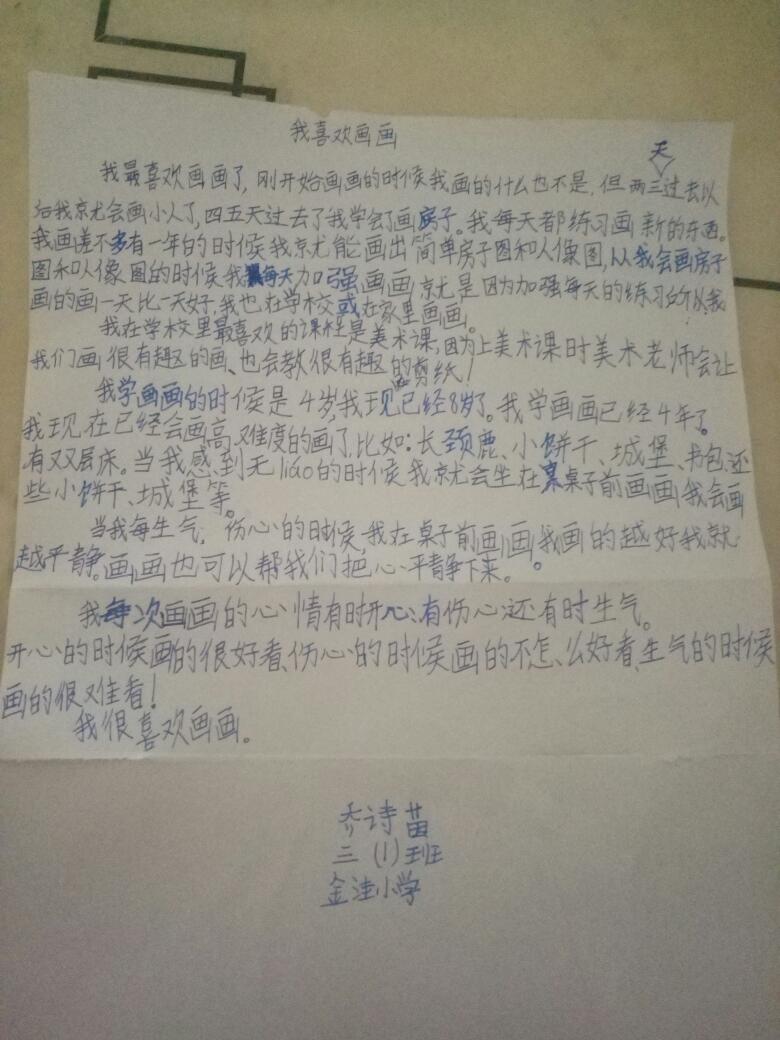 我喜欢画画
我最喜欢画画了,刚开始画画的时候我画的什么也不是,但两三天过去以
后我就会画小人了,四五天过去了我学会了画房子。我每天都练习画新的东西。
我画差不多有一年的时候我就能画出简单房子图和人像图,从我会画房子
图和人像图的时候我每天加强画画就是因为加强每天的练习所以我
画的画一天比一天好,我也在学校或在家里画画。
我在学校里最喜欢的课程是美术课,因为上美术课时美术老师会让
我们画很有趣的画、也会教很有趣的剪纸!
我学画画的时候是4岁,我现已经8岁了。我学画画已经4年了。
我现在已经会画高难度的画了,比如:长颈鹿、小饼干、城堡、书包,还
有双层床。当我感到无liáo的时候我就会坐在桌子前画画,我会画
些小饼干、城堡等。
当我每生气,伤心的时候,我在桌子前画画,我画的越好我就
越平静。画画也可以帮我们把心平静下来。
我每次画画的心情有时开心、有伤心还有时生气。
开心的时候画的很好看、伤心的时候画的不怎么好看、生气的时候
画的很难看!
我很喜欢画画。
乔诗苗
三(1)班
金洼小学